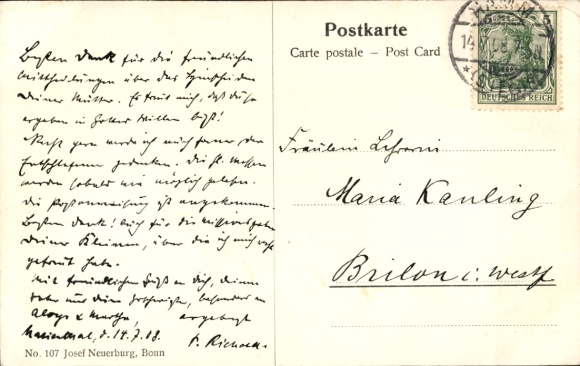 Besten Dank für die freundlichen
Mittheilungen über das Hinscheiden
Deiner Mutter. Es freut mich, daß du so
ergeben in Gottes Willen bist!
Recht gern werde ich auch ferner der
Entschlafenen gedenken. Die hl. Messen
werden sobald wie möglich gelesen.
Die Postanweisung ist angekommen.
Besten Dank! Auch für die Missionsgaben
Deiner Kleinen, über die ich mich sehr
gefreut habe.
Mit freundlichem Gruß an Dich, deinen
Vater und deine Geschwister, besonders an
Aloys & Martha, ergebenst
Marienthal, d. 14.7.08. P. Richard
No. 107 Josef Neuerburg, Bonn
Postkarte
Carte postale – Post Card
DEUTSCHES REICH
Fräulein Lehrerin
Maria Kauling
Brilon i. Westf